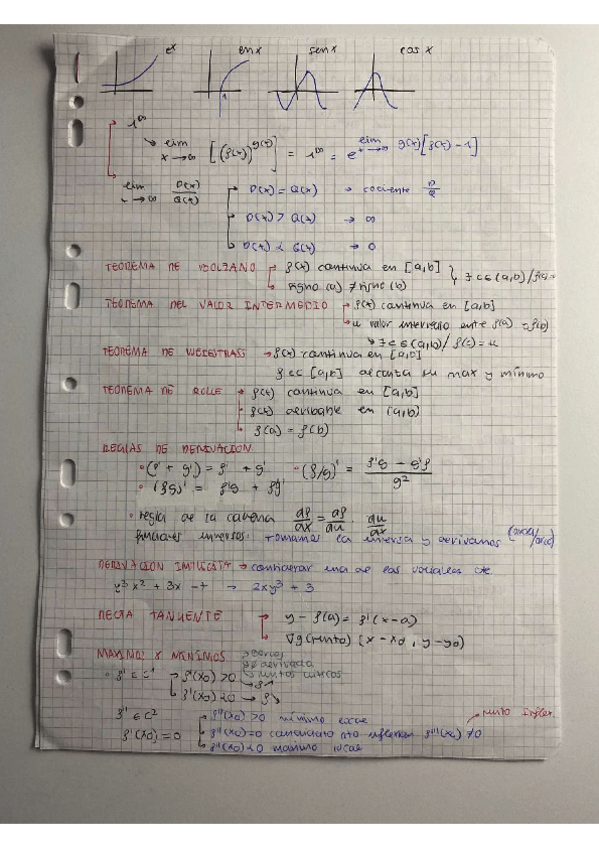 e^x ln x sen x cos x
1^∞
lim x→∞ [(f(x))^g(x)] = 1^∞ = e^lim x→∞ g(x)[f(x)-1]
lim x→∞ P(x)/Q(x) → P(x) = Q(x) → cociente P/Q
→ P(x) > Q(x) → ∞
→ P(x) < Q(x) → 0
TEOREMA DE BOLZANO → f(x) continua en [a,b] } ∃ c∈(a,b)/f(c)=
→ signo (a) ≠ signo (b)
TEOREMA DEL VALOR INTERMEDIO → f(x) continua en [a,b]
→ u valor intermedio entre f(a) = f(b)
→ ∃ c∈(a,b)/ f(c) = u
TEOREMA DE WEIESTRASS → f(x) continua en [a,b]
[a,b] alcanza su max y mínimo
TEOREMA DE ROLLE → f(x) continua en [a,b]
→ f(x) derivable en (a,b)
→ f(a) = f(b)
REGLAS DE DERIVACION
• (f + g)' = f' + g' • (f/g)' = f'g - g'f / g²
• (fg)' = f'g + fg'
• regla de la cadena df/dx = df/du · du/dx
funciones inversas: tomamos la inversa y derivamos
DERIVACION IMPLICITA → considerar una de las variables cte
y³x² + 3x - 7 → 2xy³ + 3
RECTA TANGENTE → y - f(a) = f'(x-a)
→ ∇g(punto) (x - x0, y - y0)
MAXIMOS Y MINIMOS
derivada
puntos críticos
• f' ∈ C¹ → f'(x0) > 0 → f↗
→ f'(x0) < 0 → f↘
f' ∈ C² → f''(x0) > 0 mínimo local
f'(x0) = 0 → f''(x0) = 0 candidato pto inflexion f'''(x0) ≠ 0
→ f''(x0) < 0 maximo local